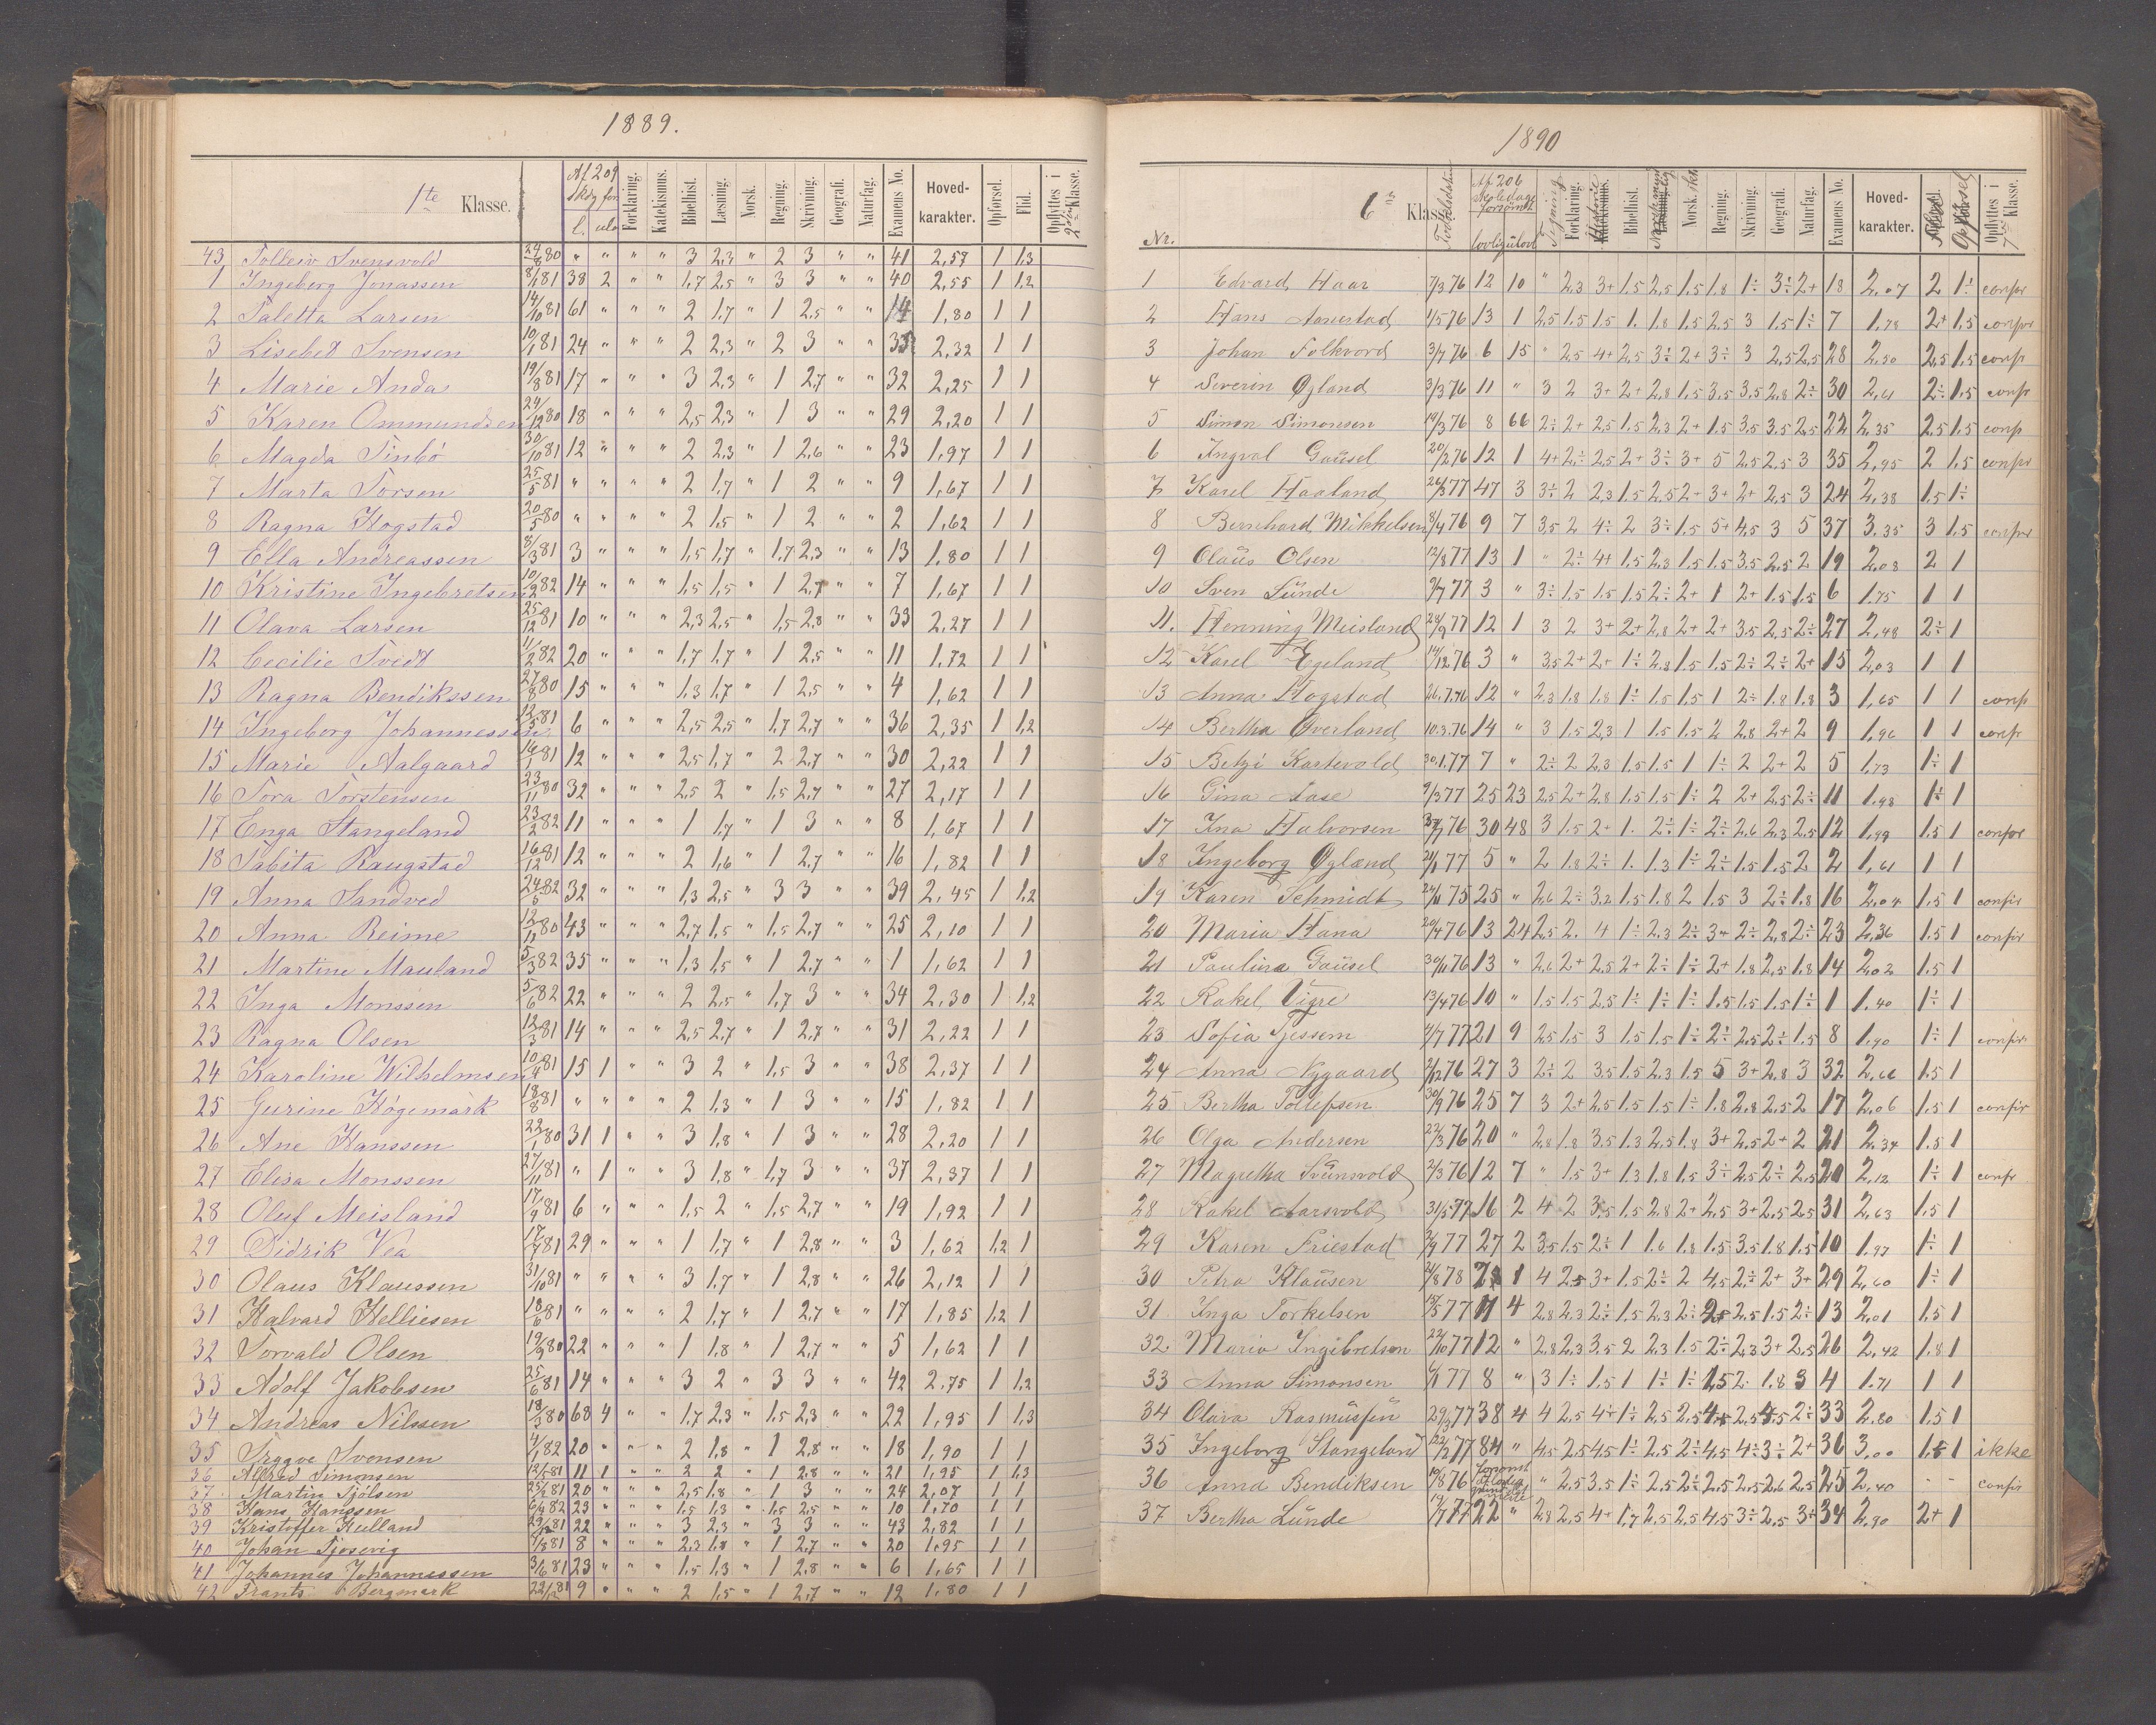 1889.
1te Klasse. Af 209 skdg for l. ulo Forklaring. Katekismus. Bibelhist. Læsning. Norsk. Regning. Skrivning. Geografi. Naturfag. Examens No. Hoved-karakter. Opførsel. Flid. Opflyttes i 2den Klasse.
43 Tolleiv Svensvold 24/8 80 " " " " 3 2,3 " 2 3 " " 41 2,57 1 1,3
1 Ingeborg Jonassen 8/1 81 38 2 " " 1,7 2,5 " 3 3 " " 40 2,55 1 1,2
2 Taletta Larsen 14/10 81 61 " " " 2 1,7 " 1 2,5 " " 14 1,80 1 1
3 Lisebet Svensen 10/1 81 24 " " " 2 2,3 " 2 3 " " 35 2,32 1 1
4 Marie Anda 19/8 81 17 " " " 3 2,3 " 1 2,7 " " 32 2,25 1 1
5 Karen Ommundsen 24/12 80 18 " " " 2,5 2,3 " 1 3 " " 29 2,20 1 1
6 Magda Tinbö 30/10 81 12 " " " 2 2,3 " 1 2,6 " " 23 1,97 1 1
7 Marta Torsen 25/5 81 " " " " 2 1,7 " 1 2 " " 9 1,67 1 1
8 Ragna Hogstad 20/5 80 " " " " 2 1,5 " 1 2 " " 2 1,62 1 1
9 Ella Andreassen 8/3 81 3 " " " 1,5 1,7 " 1,7 2,3 " " 13 1,80 1 1
10 Kristine Ingebretsen 10/2 82 14 " " " 1,5 1,5 " 1 2,7 " " 7 1,67 1 1
11 Olava Larsen 25/12 81 10 " " " 2,3 2,5 " 1,5 2,8 " " 33 2,27 1 1
12 Cecilie Tvedt 11/2 82 20 " " " 1,7 1,7 " 1 2,5 " " 11 1,72 1 1
13 Ragna Bendikssen 27/8 80 15 " " " 1,3 1,7 " 1 2,5 " " 4 1,62 1 1
14 Ingeborg Johannessen 12/5 81 6 " " " 2,5 2,5 " 1,7 2,7 " " 36 2,35 1 1,2
15 Marie Aalgaard 16/1 81 12 " " " 2,5 1,7 " 2 2,7 " " 30 2,22 1 1
16 Tora Torstensen 23/11 80 32 " " " 2,5 2 " 1,5 2,7 " " 27 2,17 1 1
17 Enga Stangeland 23/2 82 11 " " " 1 1,7 " 1 3 " " 8 1,67 1 1
18 Tabita Raugstad 16/12 81 12 " " " 2 1,6 " 1 2,7 " " 16 1,82 1 1
19 Anna Sandved 24/6 82 32 " " " 1,3 2,5 " 3 3 " " 39 2,45 1 1,2
20 Anna Reime 12/11 80 43 " " " 2,7 1,5 " 1,5 2,7 " " 25 2,10 1 1
21 Martine Mauland 5/3 82 35 " " " 1,3 1,5 " 1 2,7 " " 1 1,62 1 1
22 Inga Monssen 5/6 82 22 " " " 2 2,5 " 1,7 3 " " 34 2,30 1 1,2
23 Ragna Olsen 12/3 81 14 " " " 2,5 2,7 " 1 2,7 " " 31 2,22 1 1
24 Karoline Wilhelmsen 10/4 81 15 1 " " 3 2 " 1,5 3 " " 38 2,37 1 1
25 Gurine Högemark 18/8 81 " " " " 2 1,3 " 1 3 " " 15 1,82 1 1
26 Ane Hanssen 22/1 80 31 1 " " 3 1,8 " 1 3 " " 28 2,20 1 1
27 Elisa Monssen 27/11 81 " 1 " " 3 1,8 " 1,7 3 " " 37 2,37 1 1
28 Oluf Meisland 17/9 81 6 " " " 1,5 2 " 1,5 2,7 " " 19 1,92 1 1
29 Didrik Vea 17/7 81 29 " " " 1 1,7 " 1 2,8 " " 3 1,62 1,2 1
30 Olaus Klaussen 31/10 81 " " " " 3 1,7 " 1 2,8 " " 26 2,12 1 1
31 Halvard Helliesen 18/6 81 " " " " 2 1,7 " 1 2,7 " " 17 1,85 1,2 1
32 Torvald Olsen 19/9 80 22 " " " 1 1,8 " 1 2,7 " " 5 1,62 1 1
33 Adolf Jakobsen 25/6 81 14 " " " 3 2 " 3 3 " " 42 2,75 1 1,2
34 Andreas Nilssen 18/3 80 68 4 " " 1,7 2,3 " 1,5 2,3 " " 22 1,95 1 1,3
35 Trygve Svensen 4/1 82 20 " " " 2 1,8 " 1 2,8 " " 18 1,90 1 1
36 Alfred Simonsen 12/5 81 11 1 " " 2 2 " 1 2,8 " " 21 1,95 1 1,3
37 Martin Tjölsen 25/2 81 20 " " " 2,5 1,8 " 1 3 " " 24 2,07 1 1
38 Hans Hanssen 6/4 82 23 " " " 1,5 1,3 " 1,5 2,5 " " 10 1,70 1 1
39 Kristoffer Hulland 29/12 81 22 " " " 3 2,3 " 3 3 " " 43 2,82 1 1
40 Johan Tjosevig 7/8 81 8 " " " 2,3 1,8 " 1 2,7 " " 20 1,95 1 1
41 Johannes Johannessen 3/6 81 23 " " " 1,5 1,3 " 1 2,8 " " 6 1,65 1 1
42 Frants Bergmark 22/12 81 9 " " " 2 1,5 " 1 2,7 " " 12 1,80 1 1
1890
Nr. 6te Klasse. Fødselsdatum Af 206 Skoledage forsømt lovlig ulovl Tegning Forklaring. Historie Bibelhist. Norsk. skr Regning. Skrivning. Geografi. Naturfag. Examens No. Hoved-karakter. Opførsel Opflyttes i 7de Klasse.
1 Edvard Haar 7/3 76 12 10 " 2,3 3+ 1,5 2,5 1,5 1,8 1÷ 3÷ 2+ 18 2,07 2 1÷ confir
2 Hans Aanestad 1/5 76 13 1 2,5 1,5 1,5 1. 1,8 1,5 2,5 3 1,5 1÷ 7 1,78 2+ 1,5 confir
3 Johan Folkvord 3/7 76 6 15 " 2,5 4+ 2,5 3÷ 2+ 3÷ 3 2,5 2,5 28 2,50 2,5 1,5 conf
4 Severin Øgland 3/3 76 11 " 3 2 3+ 2+ 2,8 1,5 3,5 3,5 2,8 2÷ 30 2,61 2÷ 1,5 conf
5 Simon Simonsen 19/3 76 8 66 2÷ 2+ 2,5 1,5 2,3 2+ 1,5 3,5 3,5 2,5 22 2,35 2,5 1,5 conf
6 Ingval Gausel 20/2 76 12 1 4+ 2÷ 2,5 2+ 3÷ 3+ 5 2,5 2,5 3 35 2,95 2 1,5 confir
7 Karel Haaland 26/3 77 47 3 3÷ 2 2,3 1,5 2,5 2- 3+ 2+ 2,5 3 24 2,38 1,5 1÷
8 Bernhard Mikkelsen 8/4 76 9 7 3,5 2 4÷ 2 3÷ 1,5 5+ 4,5 3 5 37 3,35 3 1,5 confir
9 Olaus Olsen 12/8 77 13 1 " 2÷ 4+ 1,5 2,3 1,5 1,5 3,5 2,5 2 19 2,08 2 1
10 Sven Lunde 9/7 77 3 " 3÷ 1,5 1,5 1,5 2÷ 2+ 1 2+ 1,5 1,5 6 1,75 1 1
11. Henning Meisland 28/9 77 12 1 3 2 3+ 2+ 2,8 2+ 2+ 3,5 2,5 2÷ 27 2,48 2÷ 1
12 Karel Egeland 14/12 76 3 " 3,5 2+ 2+ 1÷ 2,3 1,5 1,5 2÷ 2÷ 2+ 15 2,03 1 1
13 Anna Hogstad 26.7.76 12 " 2,3 1,8 1,8 1÷ 1,5 1,5 1 2÷ 1,8 1,8 3 1,65 1 1 conf
14 Bertha Øverland 10.3.76 14 " 3 1,5 2,3 1 1,5 1,5 2 2,8 2+ 2 9 1,96 1 1 conf
15 Betzi Kartevold 30.1.77 7 " 2÷ 2 2,3 1,5 1,5 1 1÷ 2 2+ 2 5 1,73 1÷ 1
16 Gina Aase 9/3 77 25 23 2,5 2+ 2,8 1,5 1,5 1÷ 2 2+ 2,5 2÷ 11 1,98 1÷ 1
17 Ina Halvorsen 76 30 48 3 1,5 2+ 1. 2÷ 1÷ 2÷ 2,6 2,3 2,5 12 1,99 1,5 1 confir
18 Ingeborg Øgland 21/1 77 5 " 2 1,8 2÷ 1. 1,3 1÷ 2÷ 1,5 1,5 2 2 1,61 1 1
19 Karen Schmidt 24/11 75 25 " 2,6 2÷ 3,2 1,5 1,8 2 1,5 3 2÷ 1,8 16 2,04 1,5 1 confir
20 Maria Hana 20/4 76 13 24 2,5 2. 4 1÷ 2,3 2÷ 3+ 2÷ 2,8 2÷ 23 2,36 1,5 1 confir
21 Paulina Gausel 30/11 76 13 " 2,6 2+ 2,5 2+ 2÷ 1÷ 2+ 1,8 2,5 1,8 14 2,02 1,5 1
22 Rakel Vigre 13/4 76 10 " 1,5 1,5 2,5 1÷ 1÷ 1÷ 1,5 1,5 1,5 1÷ 1 1,40 1÷ 1
23 Sofia Tjessem 2/7 77 21 9 2,5 1,5 3 1,5 1,5 1÷ 2÷ 2,5 2÷ 1,5 8 1,90 1÷ 1 confir
24 Anna Nygaard 2/12 76 27 3 2÷ 2 3,5 1,5 2,3 1,5 5 3+ 2,8 3 32 2,66 1,5 1
25 Bertha Tollefsen 30/9 76 25 7 3 2+ 2,5 1,5 1,5 1÷ 1,8 2,8 2,5 2 17 2,06 1,5 1 confir
26 Olga Andersen 22/3 76 20 " 2,8 1,8 3,5 1,3 2,5 1,8 3+ 2,5 2+ 2 21 2,34 1,5 1
27 Magretha Svensvold 2/3 76 12 7 " 1,5 3+ 1,3 1,8 1,5 3÷ 2,5 2÷ 2,5 20 2,12 1÷ 1 conf
28 Rakel Aarsvold 31/5 77 16 2 4 2 3,5 1,5 2,8 2+ 2,5 3+ 2,5 2,5 31 2,63 1,5 1
29 Karen Friestad 3/9 77 27 2 3,5 1,5 2÷ 1 1,6 1,8 1,5 3,5 1,8 1,5 10 1,97 1÷ 1
30 Petra Klausen 21/8 78 1 4 2,5 3+ 1,5 2÷ 2 4,5 2÷ 2+ 3+ 29 2,60 1÷ 1
31. Inga Torkelsen 15/5 77 11 4 2,8 2,3 2÷ 1,5 2,3 2÷ 2,5 2,5 1,5 2÷ 13 2,01 1,5 1
32. Maria Ingebretsen 22/10 77 12 " 2,8 2,3 3,5 2 2,3 1,5 2÷ 2,3 3+ 2,5 26 2,42 1,8 1
33 Anna Simonsen 6/1 77 8 " 3 1÷ 1,5 1 1÷ 1÷ 1,5 2÷ 1,8 3 4 1,71 1 1
34 Olava Rasmussen 29/3 77 38 4 4 2,5 4÷ 1÷ 2,5 2,5 4,5 2,5 4,5 2÷ 33 2,80 1,5 1
35 Ingeborg Stangeland 22/2 77 84 " 4,5 2,5 4,5 1÷ 2,5 2÷ 4,5 4÷ 3÷ 2+ 36 3,00 1,5 1 ikke
36 Anna Bendiksen 10/8 76 " 2,5 3,5 1÷ 2,5 2÷ 2,5 2,5 2,6 2,5 25 2,40 - - confir
37 Bertha Lunde 19/7 77 22 " 2,8 2,5 4+ 1,7 2,5 2,5 4,5 3÷ 2,5 3÷ 34 2,90 2+ 1